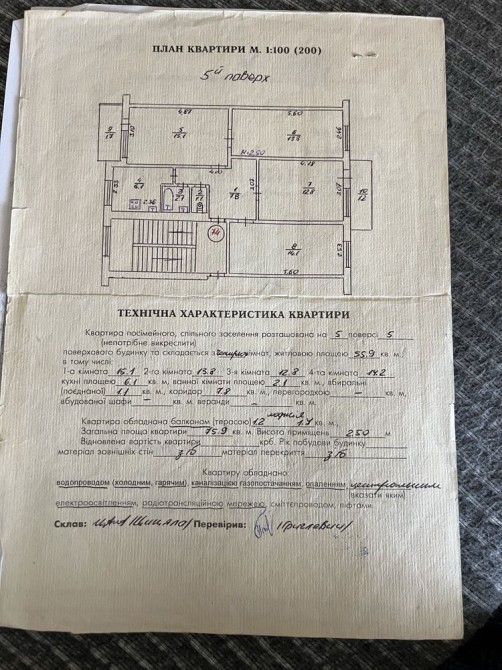 ПЛАН КВАРТИРИ М. 1:100 (200)
5й поверх
4.87
5.60
9
1.7
3.10
5
15.1
6
13.8
2.46
H=2.50
4.18
4
6.1
3
2.1
2
1.1
1
7.8
3.07
7
12.8
3.07
10
1.2
2.76
74
8
14.2
2.53
5.60
ТЕХНІЧНА ХАРАКТЕРИСТИКА КВАРТИРИ
Квартира посімейного, спільного заселення розташована на 5 поверсі 5
(непотрібне викреслити)
поверхового будинку та складається з чотирьох кімнат, житловою площею 55.9 кв. м.,
в тому числі:
1-а кімната 15.1 2-го кімната 13.8 3-я кімната 12.8 4-та кімната 14.2
кухні площею 6.1 кв. м, ванної кімнати площею 2.1 кв. м, вбиральні
(поєднаної) 1.1 кв. м, коридор 7.8 кв. м., перегородкою — кв. м,
вбудованої шафи — кв. м веранди — кв. м.
лоджія
Квартира обладнана балконом (терасою) 1.2 1.7 кв. м.,
Загальна площа квартири 75.9 кв. м. Висота приміщень 2.50 м.
Відновлена вартість квартири крб. Рік побудови будинку
матеріал зовнішніх стін з/б матеріал перекриття з/б
Квартиру обладнано:
водопроводом (холодним, гарячим), каналізацією газопостачанням, опаленням центральним
(вказати яким)
електроосвітленням, радіотрансляційною мережею, сміттєпроводом, ліфтами.
Склав: Перевірив: